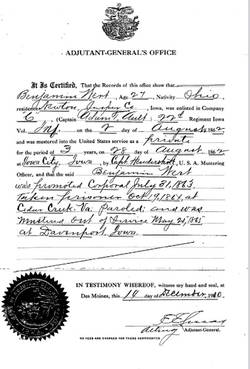 ADJUTANT-GENERAL'S OFFICE
It Is Certified, That the Records of this office show that
Benjamin Wert, Age 27, Nativity Ohio
residence Newton, Jasper Co, Iowa, was enlisted in Company
"C", (Captain Adam T. Ault, 22nd Regiment Iowa
Vol. Inf. on the 2 day of August, 1862
and was mustered into the United States service as a Private
for the period of 3 years, on 28 day of August 1862
at Iowa City, Iowa, by Capt. Hendershott, U. S. A. Mustering
Officer, and that the said Benjamin Wert
was promoted Corporal July 31, 1863.
Taken prisoner Oct 19, 1864, at
Cedar Creek, Va. Paroled and was
Mustered out of Service May 25, 1865
at Davenport, Iowa.
IN TESTIMONY WHEREOF, witness my hand and seal, at
Des Moines, this 14 day of December,
Acting Adjutant-General.
NO FEES ARE CHARGED FOR THESE CERTIFICATES